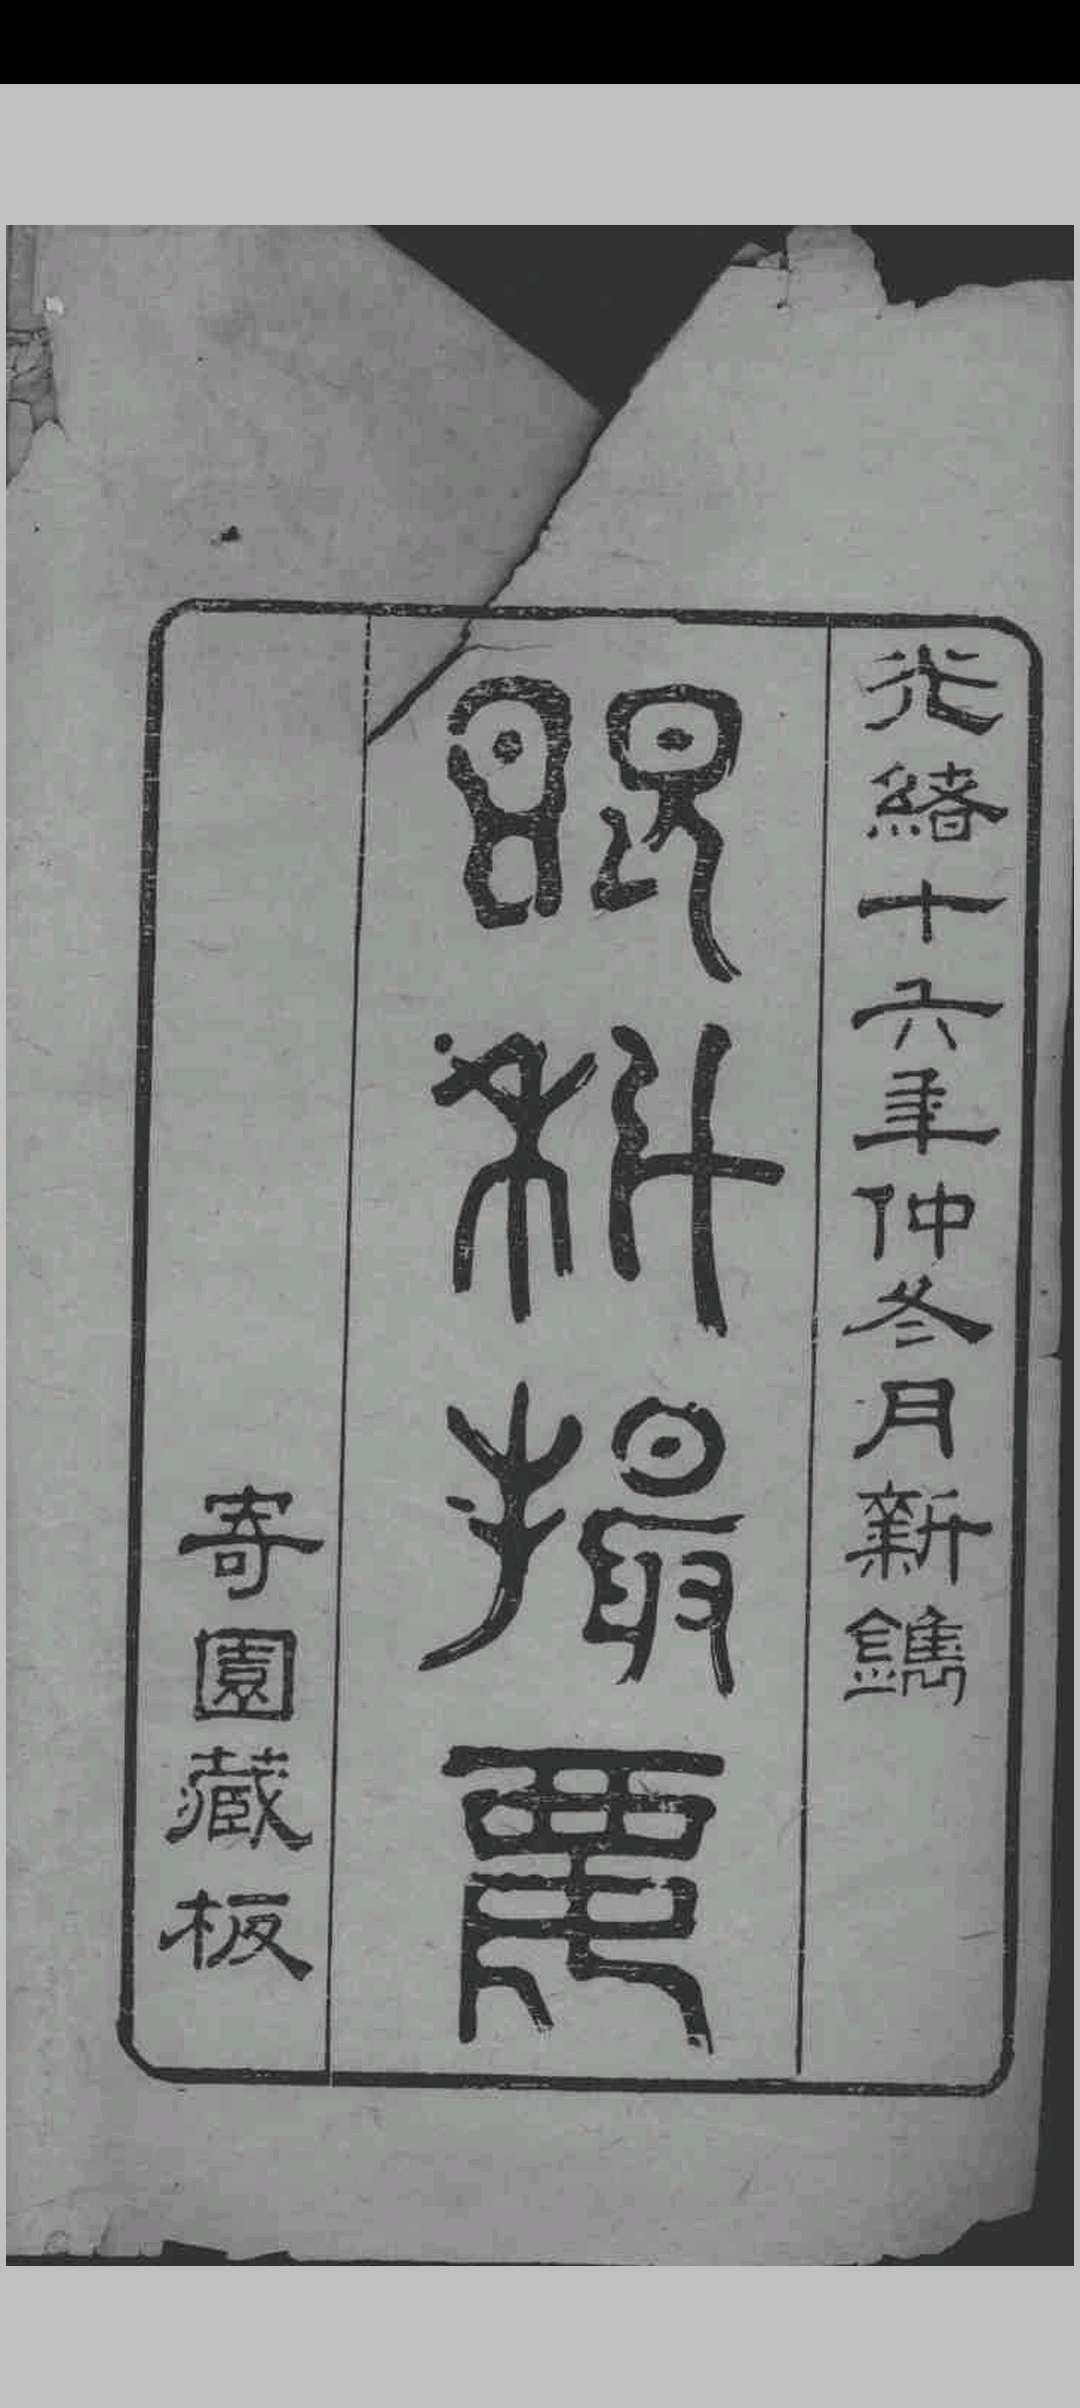 光緒十六年仲冬月新鐫
眼科撮要
寄園藏板